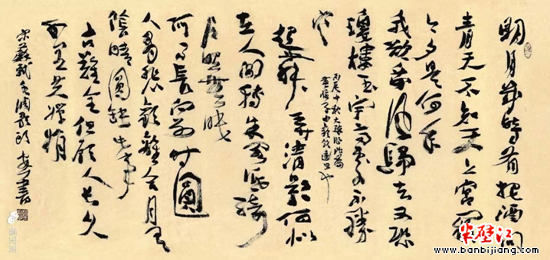 明月幾時有把酒問
青天不知天上宮闕
今夕是何年
我欲乘風歸去又恐
瓊樓玉宇高處不勝
寒
起舞弄清影何似
在人間轉朱閣低綺
戶照無眠
何事長向別時圓
人有悲歡離合月有
陰晴圓缺此事
古難全但願人長久
千里共嬋娟
宋蘇軾水調歌頭 書
半壁江
www.banbijiang.com